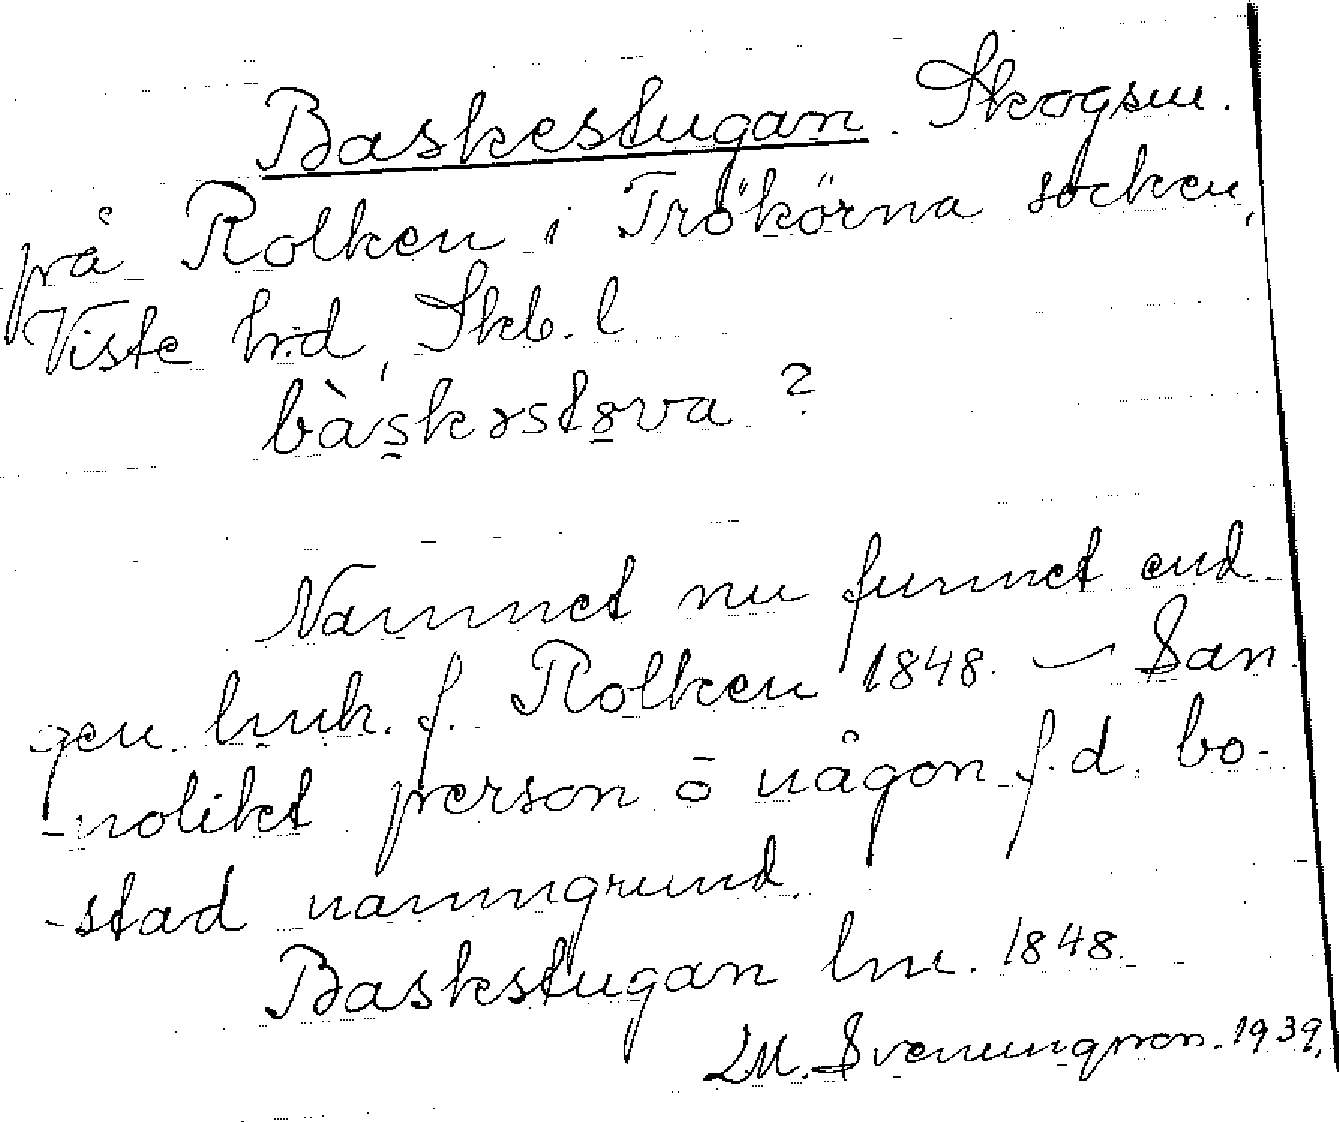 Baskestugan. Skogsm.
på Rolken i Trökörna socken,
Viste hrd, Skb. l
bàskəstova ?
Namnet nu funnet end-
gen hmk. f. Rolken 1848. – San-
nolikt person ō någon f.d. bo-
stad namngrund.
Baskstugan hm. 1848.
LM. Svenungsson. 1939.